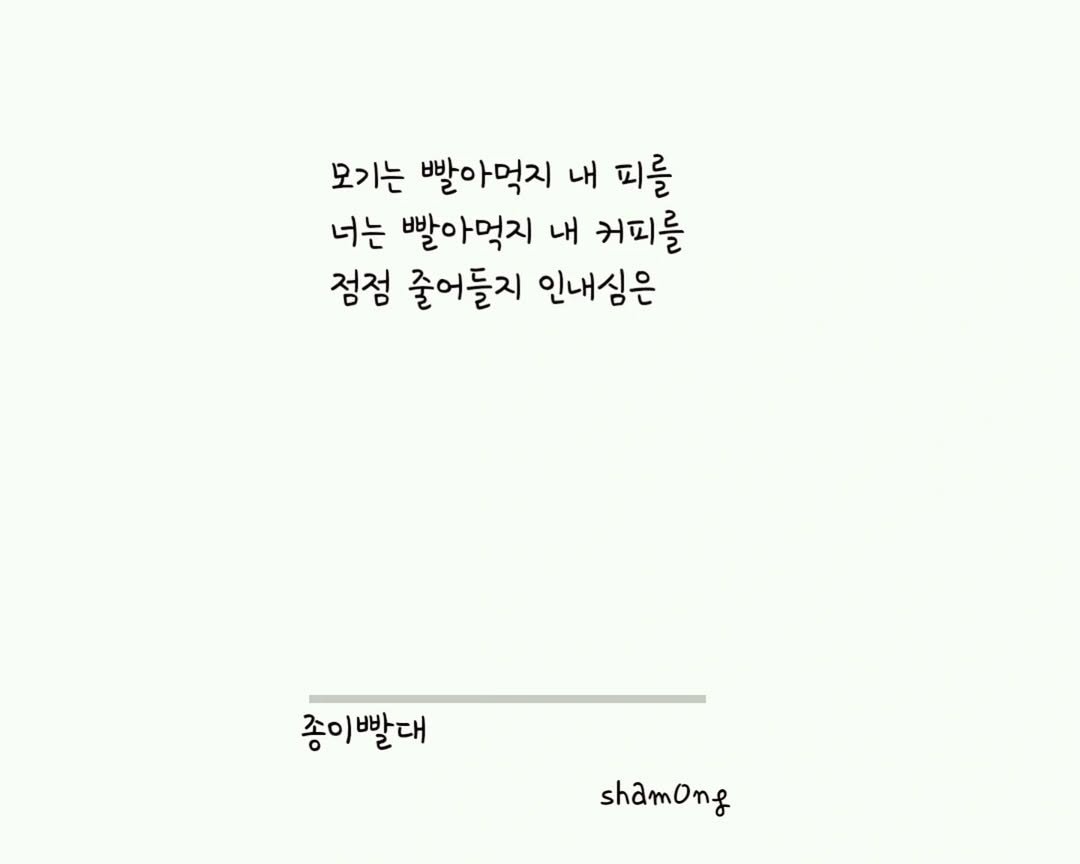 모기는 빨아먹지 내 피를
너는 빨아먹지 내 커피를
점점 줄어들지 인내심은
종이빨대
sham0ng